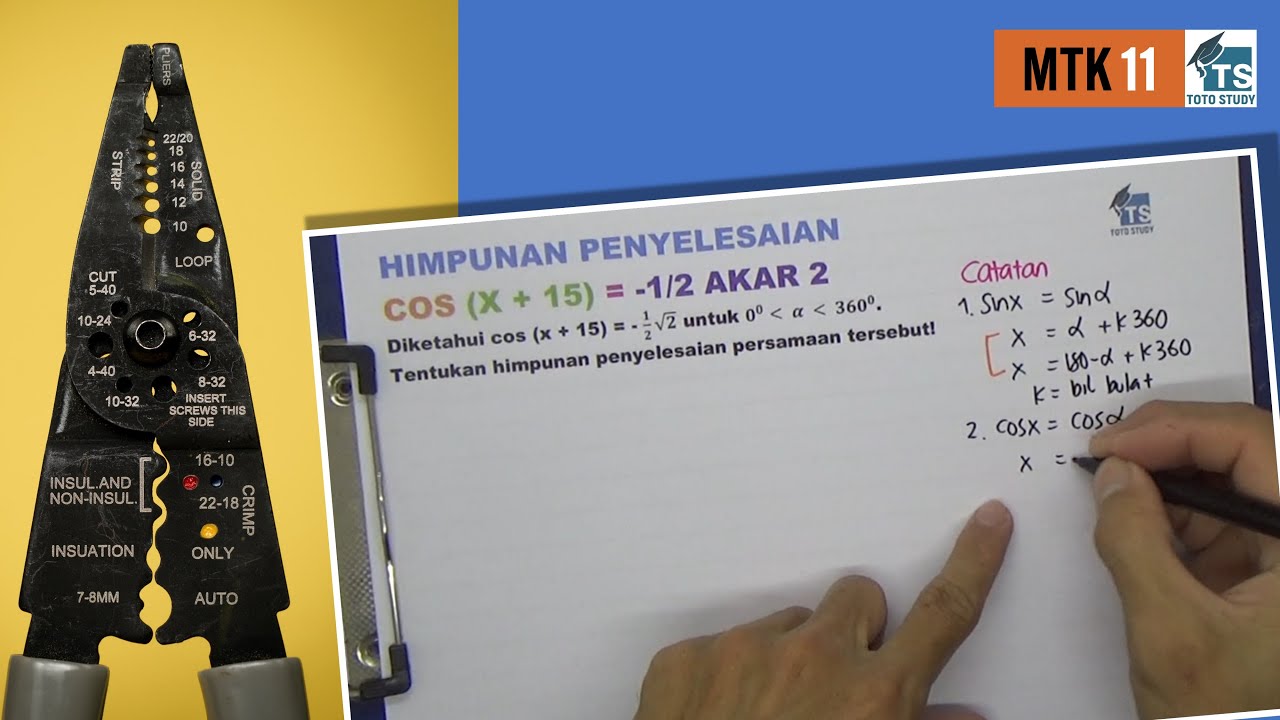 PLIERS
22/20
18
16
14
12
10
STRIP
SOLID
LOOP
CUT
5-40
10-24
6-32
4-40
8-32
10-32
INSERT
SCREWS THIS
SIDE
16-10
INSUL.AND
NON-INSUL.
22-18
CRIMP
INSUATION
ONLY
7-8MM
AUTO
MTK 11
TS
TOTO STUDY
TS
TOTO STUDY
HIMPUNAN PENYELESAIAN
COS (X + 15) = -1/2 AKAR 2
Diketahui cos (x + 15) = - 1/2 √2 untuk 0⁰ < α < 360⁰.
Tentukan himpunan penyelesaian persamaan tersebut!
Catatan
1. Sin x = sin α
x = α + k 360
x = 180-α + k 360
k = bil bulat
2. cos x = cos α
x =